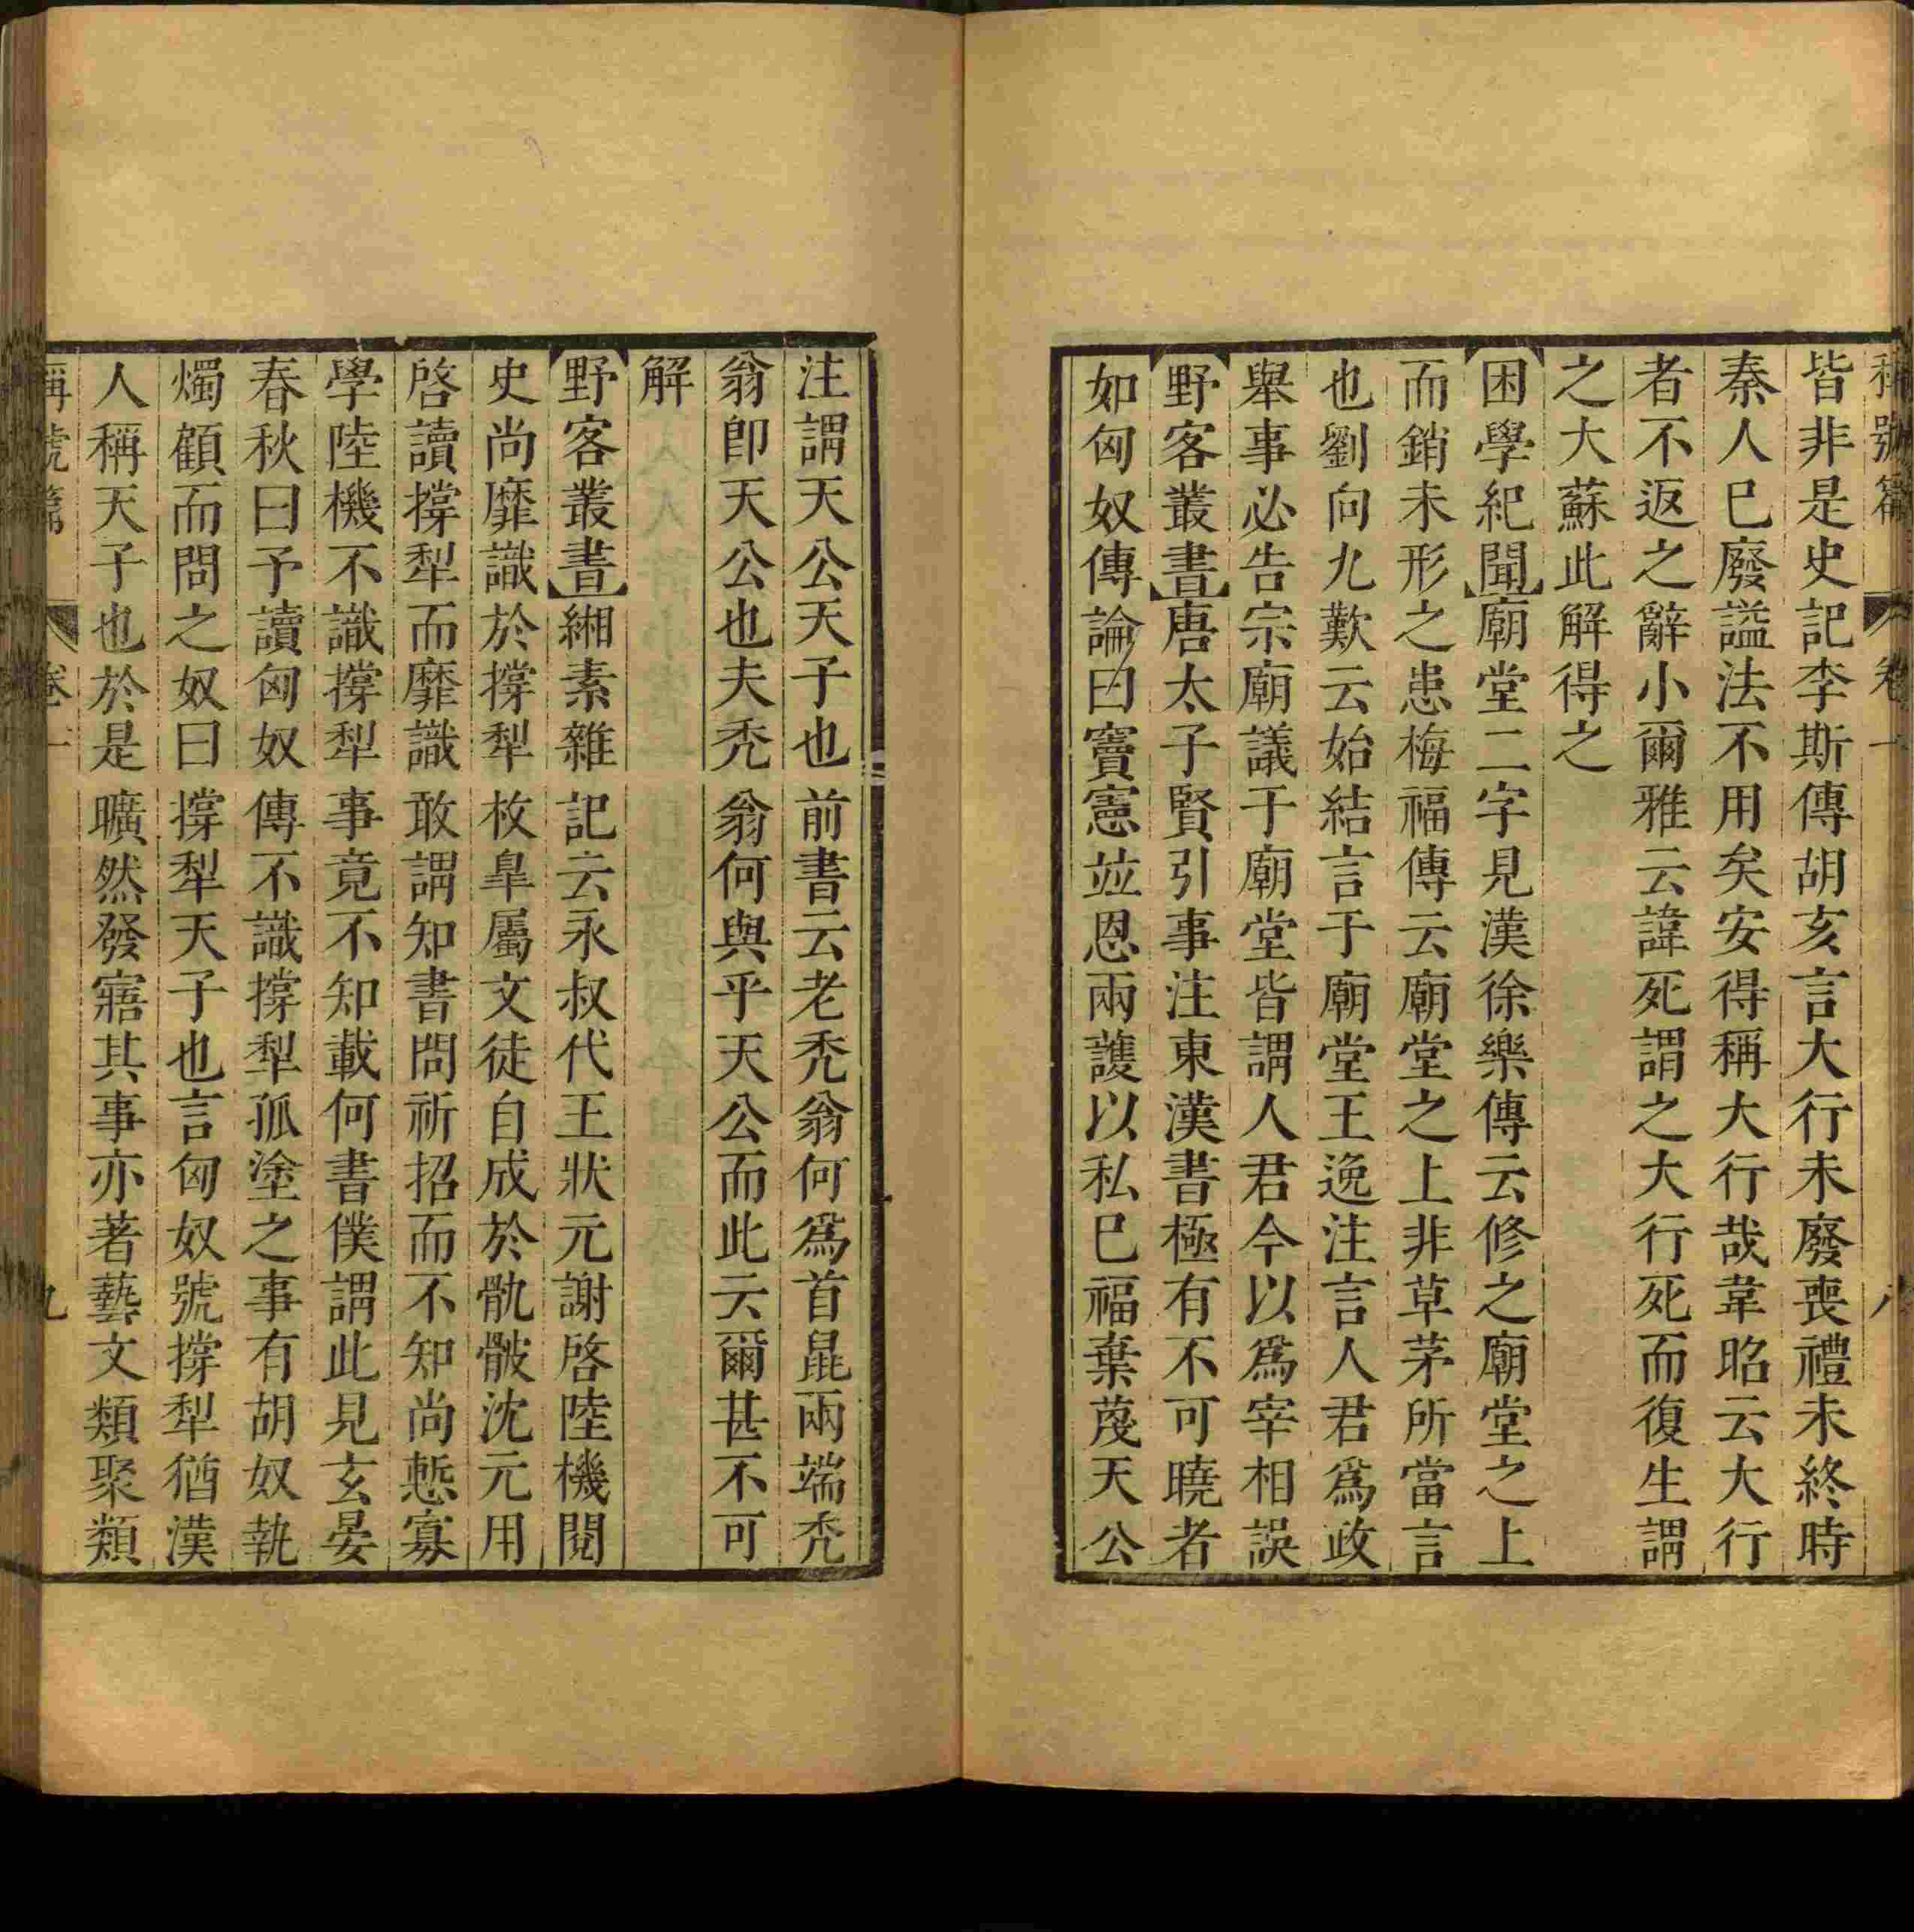 稱號篇 卷一 八
皆非是史記李斯傳胡亥言大行未廢喪禮未終時
秦人巳廢謚法不用矣安得稱大行哉韋昭云大行
者不返之辭小爾雅云諱死謂之大行死而復生謂
之大蘇此解得之
【困學紀聞】廟堂二字見漢徐樂傳云修之廟堂之上
而銷未形之患梅福傳云廟堂之上非草茅所當言
也劉向九歎云始結言于廟堂王逸注言人君爲政
舉事必告宗廟議于廟堂皆謂人君今以爲宰相誤
【野客叢書】唐太子賢引事注東漢書極有不可曉者
如匈奴傳論曰竇憲竝恩兩護以私巳福棄蔑天公
注謂天公天子也前書云老禿翁何爲首鼠兩端禿
翁卽天公也夫禿翁何與乎天公而此云爾甚不可
解
【野客叢書】緗素雜記云永叔代王狀元謝啓陸機閱
史尚靡識於撐犁枚臯屬文徒自成於骩骳沈元用
啓讀撐犁而靡識敢謂知書問祈招而不知尚慙寡
學陸機不識撐犁事竟不知載何書僕謂此見玄晏
春秋曰予讀匈奴傳不識撐犁孤塗之事有胡奴執
燭顧而問之奴曰撐犁天子也言匈奴號撐犁猶漢
人稱天子也於是曠然發寤其事亦著藝文類聚類
稱號篇 卷一 九